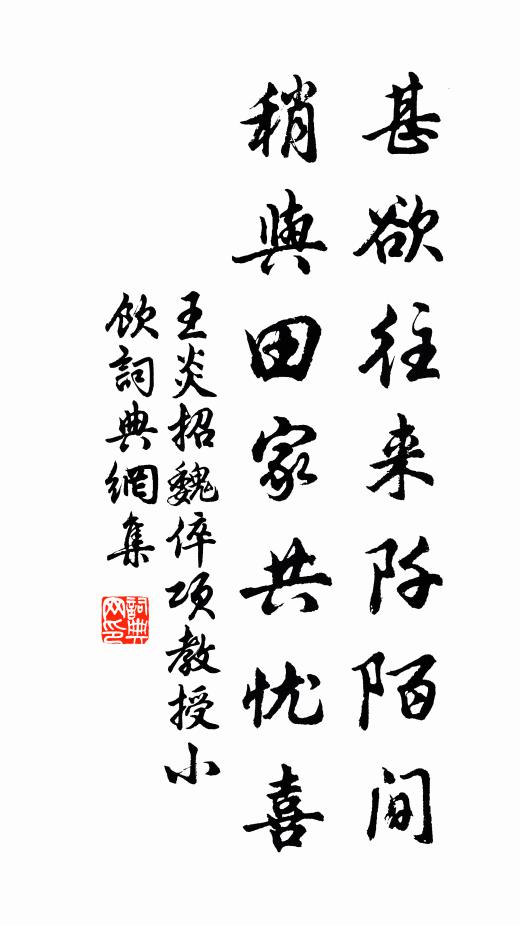 甚欲往来阡陌间
稍與田家共忧喜
王炎招魏倅項教授小
飲詞典網集
詞典
网印